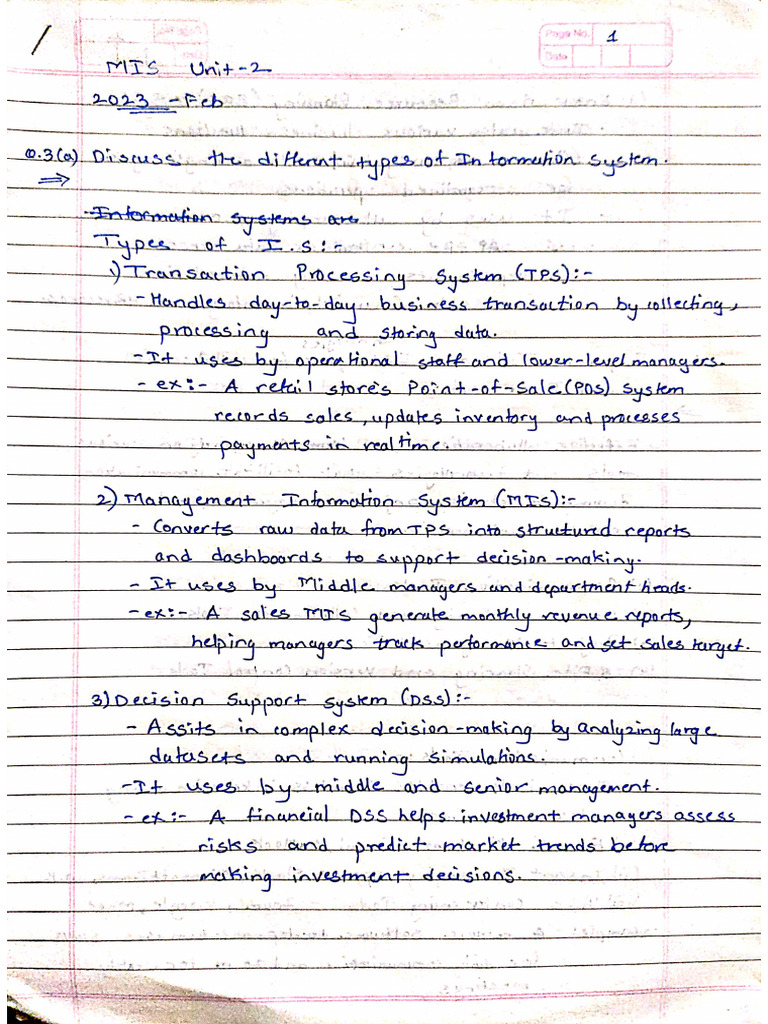 Page No. 1
Date
MIS Unit-2
2023 - Feb
Q.3(a) Discuss the different types of Information System.
⇒
Information systems are
Types of I.S:-
1) Transaction Processing System (TPS):-
- Handles day-to-day business transaction by collecting,
processing and storing data.
- It uses by operational staff and lower-level managers.
- ex:- A retail store's Point-of-Sale (POS) system
records sales, updates inventory and processes
payments in real time.
2) Management Information System (MIS):-
- Converts raw data from TPS into structured reports
and dashboards to support decision-making.
- It uses by Middle managers and department heads.
- ex:- A sales MIS generate monthly revenue reports,
helping managers track performance and set sales target.
3) Decision Support System (DSS):-
- Assits in complex decision-making by analyzing large
datasets and running simulations.
- It uses by middle and senior management.
- ex:- A financial DSS helps investment managers assess
risks and predict market trends before
making investment decisions.